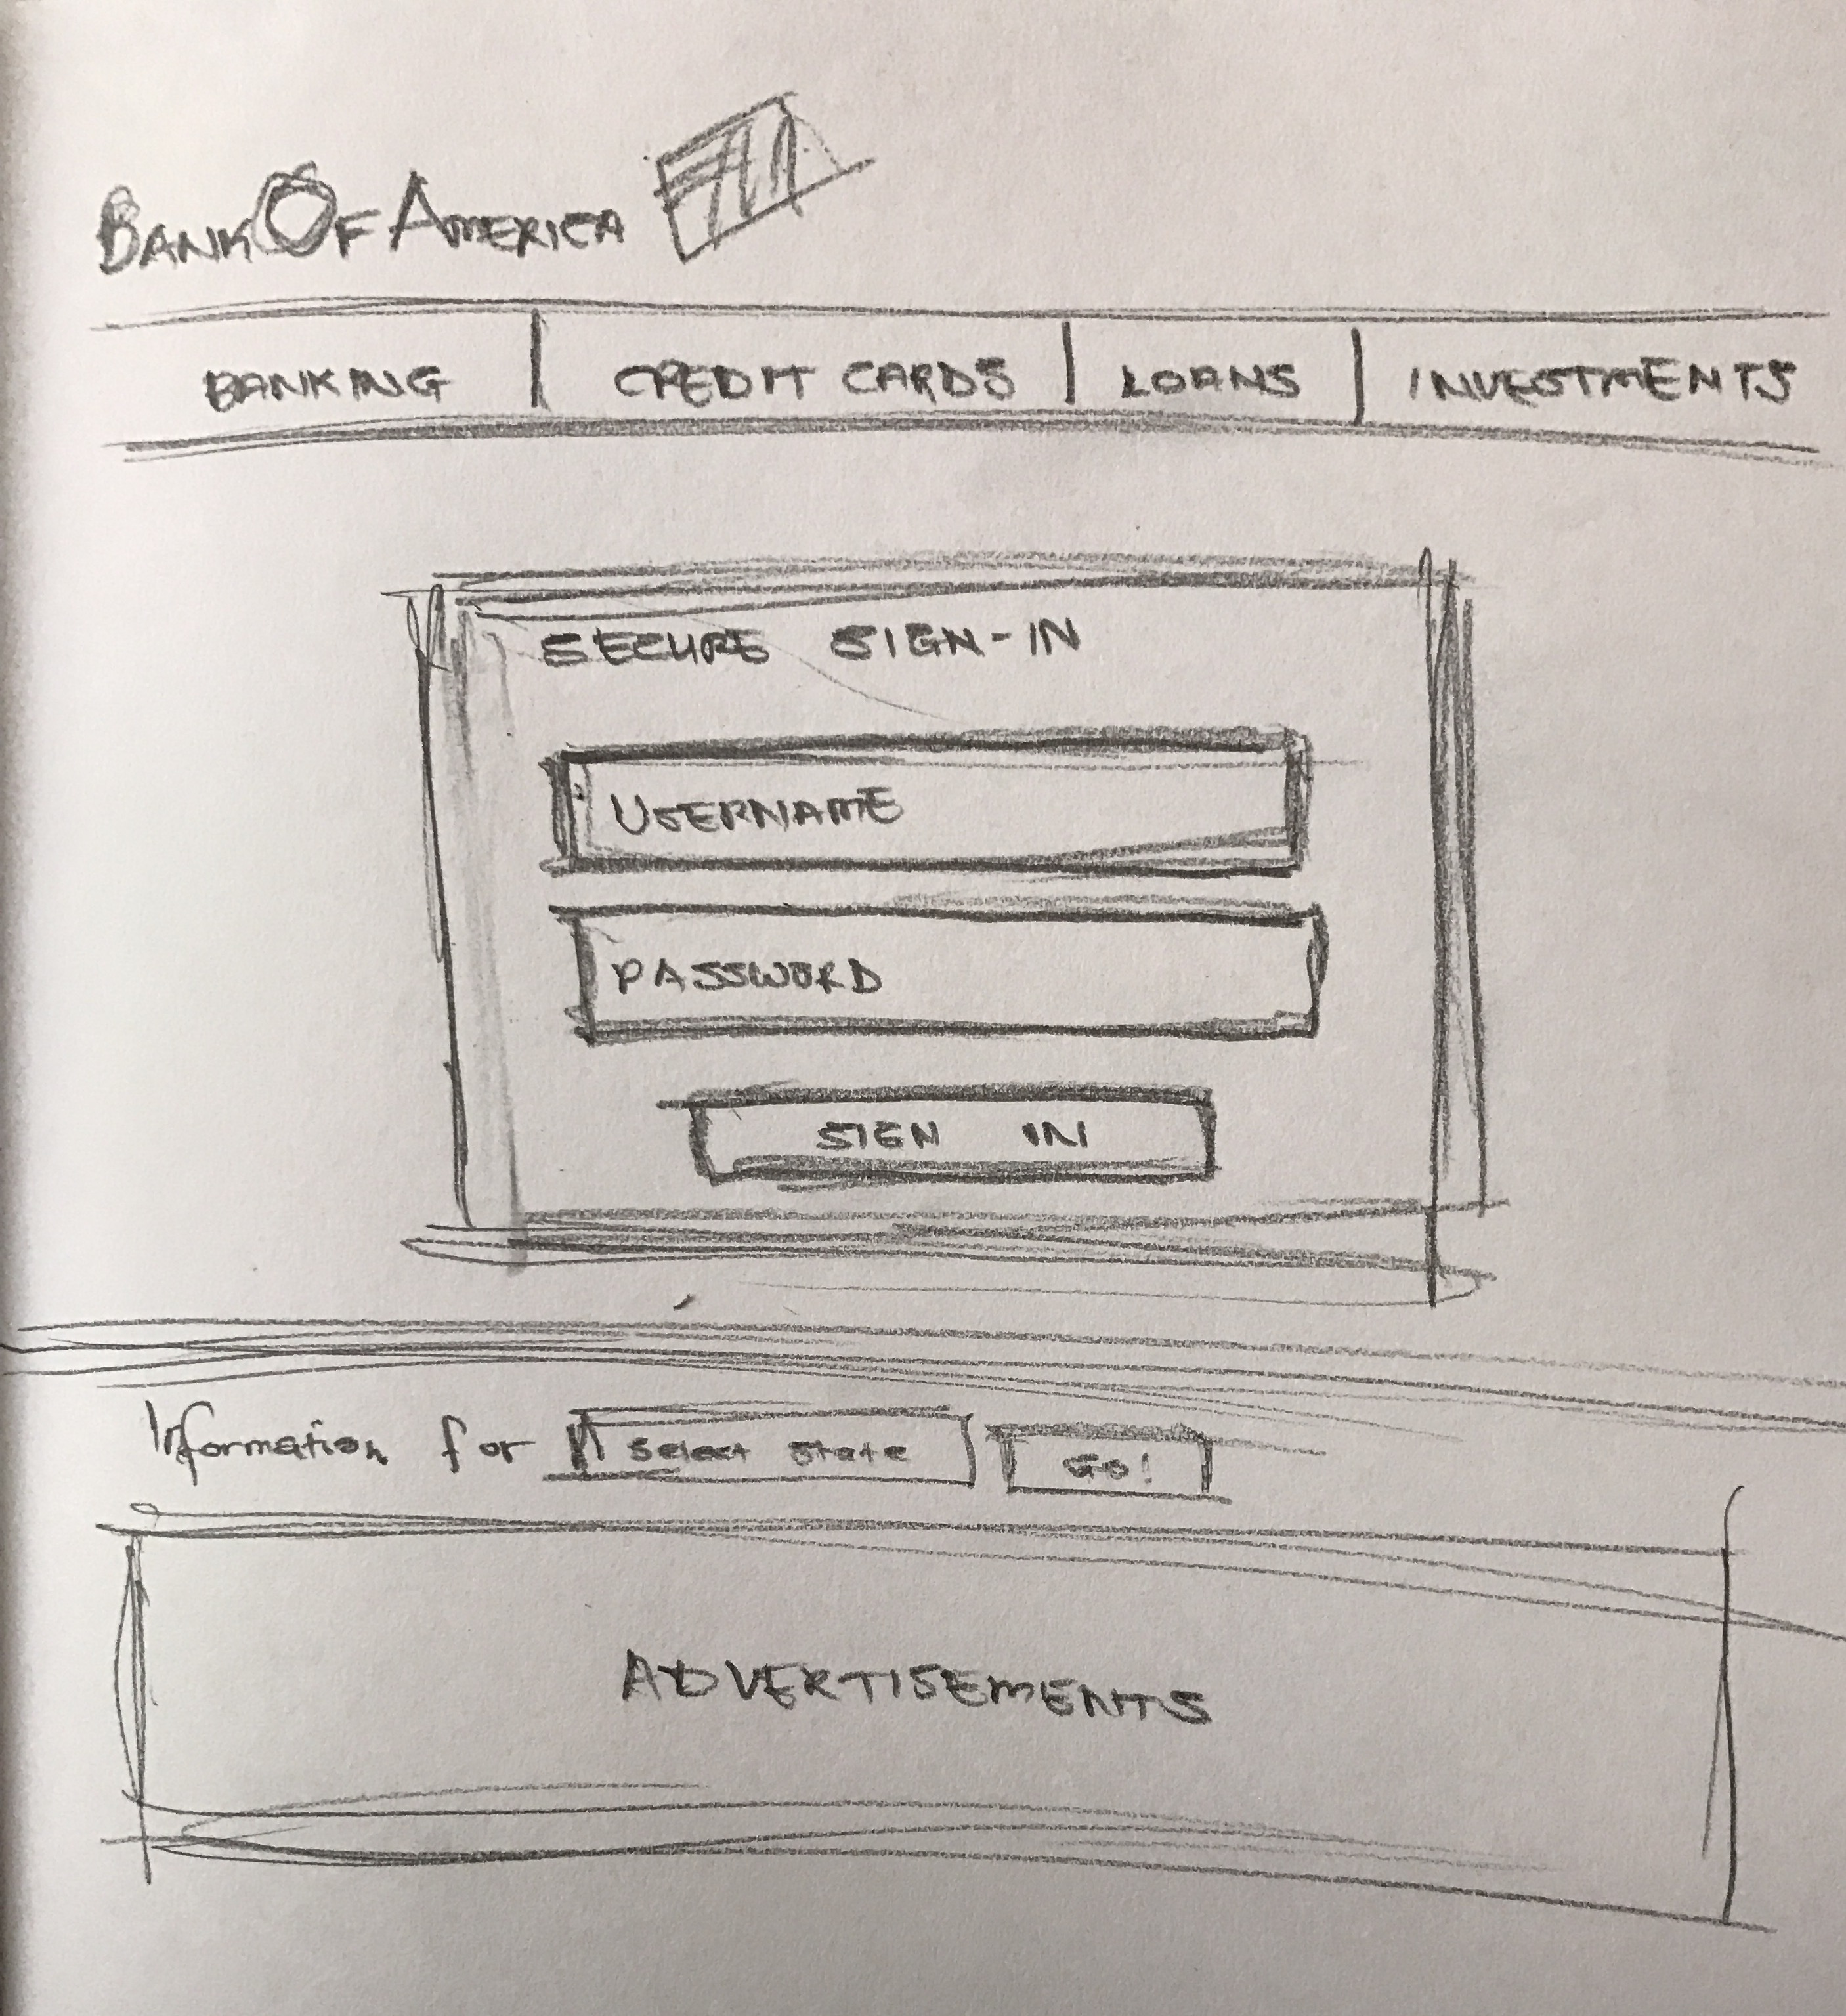 BANK OF AMERICA
BANKING | CREDIT CARDS | LOANS | INVESTMENTS
SECURE SIGN-IN
USERNAME
PASSWORD
SIGN IN
Information for Select State GO!
ADVERTISEMENTS